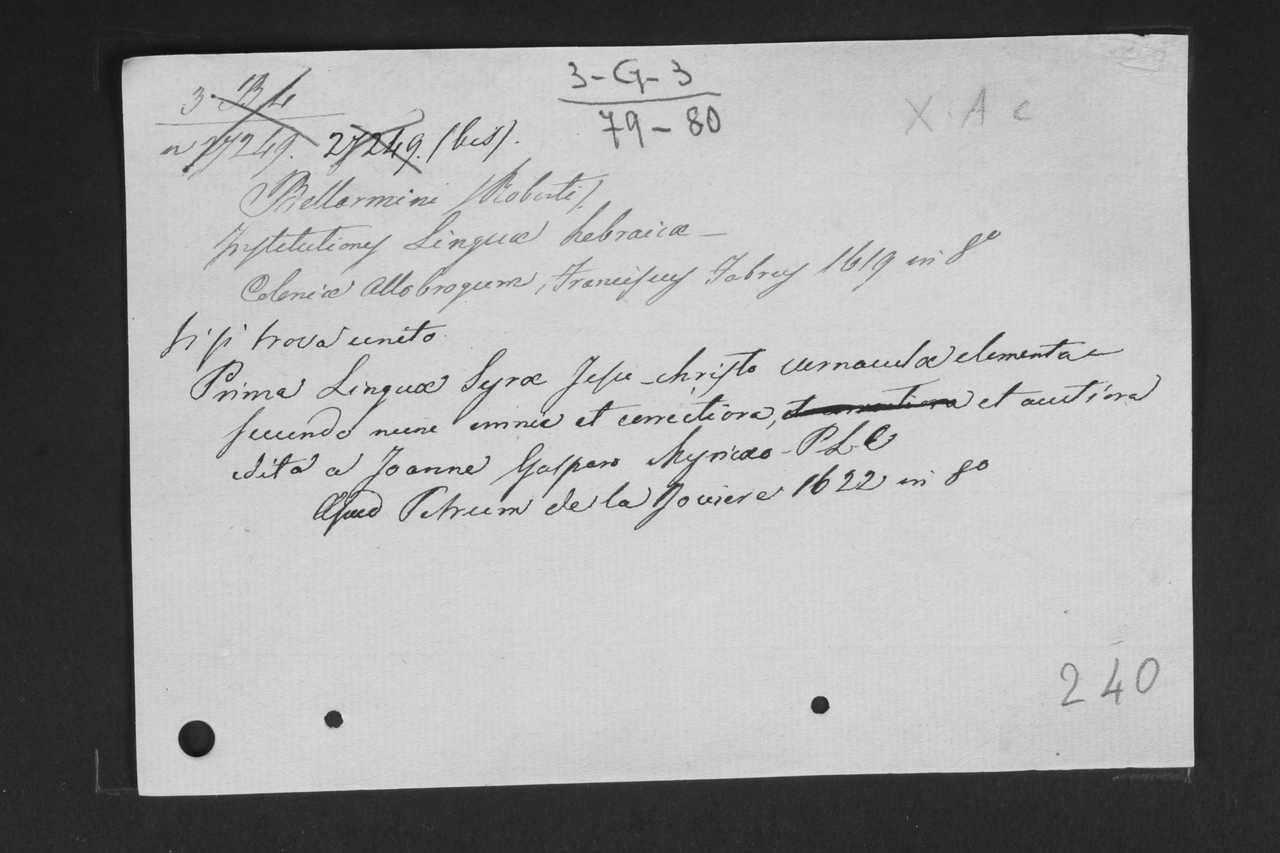 3-B-4
3-G-3
79-80
X A c
n 27249. 27249. (bis).
Bellarmini (Roberti)
Institutiones Linguæ hebraicæ —
Coloniæ Allobrogum, Franciscus Fabrus 1619 in 8º
vi si trova unito
Prima Linguæ Syræ Jesu-Christo vernaculæ elementa
secundo nunc omnia et correctiora, et correctiora et auctiora
edita a Joanne Gasparo Myricæo - P L C
Apud Petrum de la Roviere 1622 in 8º
240